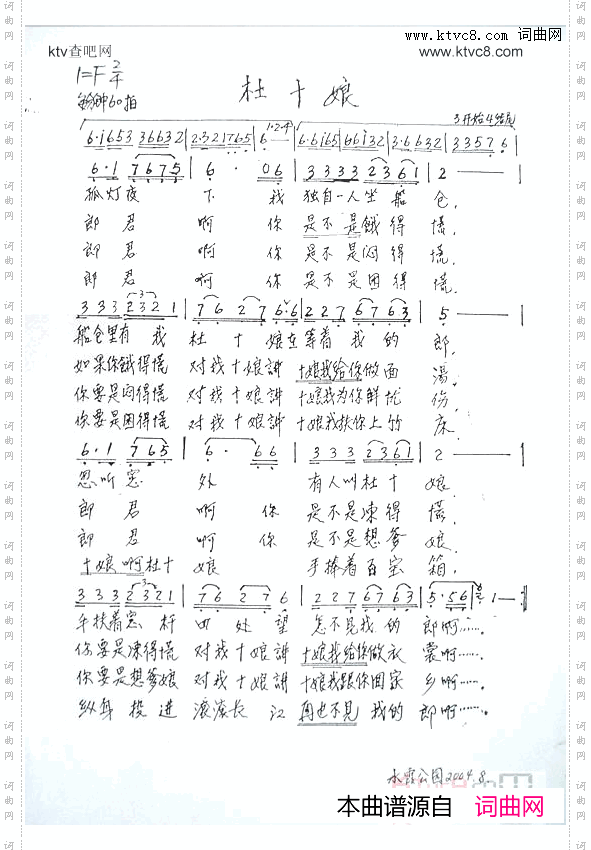 www.ktvc8.com 词曲网
ktv查吧网
www.ktvc8.com
1=F 2/4
每分钟60拍
杜十娘
3开始4结尾
1·2·4
6·i653 36632 | 2·321765 | 6 — | 6·6i65 66i32 | 3·66632 | 33576 |
6·1 7675 | 6· 06 | 3333 2361 | 2 — — |
孤灯夜 下 我 独自一人坐船 仓,
郎君 啊 你 是不是餓得 慌,
郎君 啊 你 是不是闷得 慌,
郎君 啊 你 是不是困得 慌,
333 2321 | 76 27 6·6 | 227 6763 | 5 — — |
船仓里有 我 杜十 娘在等着我的 郎,
如果你餓得慌 对我十娘讲 十娘我给你做面 湯,
你要是闷得慌 对我十娘讲 十娘我为你解忧 伤,
你要是困得慌 对我十娘讲 十娘我扶你上竹 床,
6·1 765 | 6· 66 | 333 2361 | 2 — — |
忽听窓 处 有人叫杜十 娘,
郎君 啊 你 是不是凍得 慌,
郎君 啊 你 是不是想爹 娘,
十娘啊杜十 娘 手捧着百宝 箱,
333 2321 | 76 27 6 | 227 6763 | 5·56 1 — :‖
手扶着窓杆 四处望 怎不见我的 郎啊……,
你要是凍得慌 对我十娘讲 十娘我给你做衣 裳啊……,
你要是想爹娘 对我十娘讲 十娘我跟你回家 乡啊……,
纵身投进 滚滚长江 再也不见我的郎啊……,
水霞公园2004.8.
本曲谱源自 词曲网